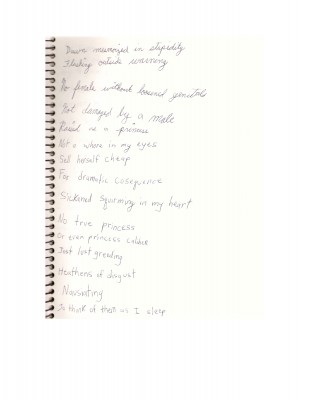 Dawn memorized in stupidity
Flashing outside warning
No female without loosened genitals
Not damaged by a male
Raised as a princess
Not a whore in my eyes
Sell herself cheap
For dramatic cosequence
Sickened squirming in my heart
No true princess
Or even princess caliber
Just lost greeding
Heathens of disgust
Nauseating
To think of them as I sleep